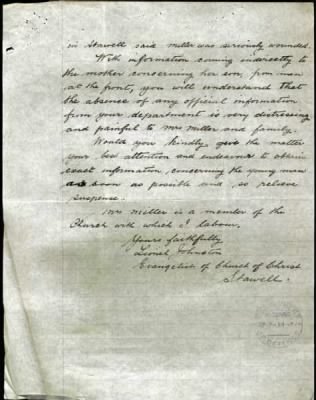 in Stawell said Miller was seriously wounded.
With information coming indirectly to
the mother concerning her son, from men
at the front, you will understand that
the absence of any official information
from your department is very distressing
and painful to Mrs Miller and family.
Would you kindly give the matter
your best attention and endeavour to obtain
exact information concerning the young man
as soon as possible and so relieve
suspense.
Mrs Miller is a member of the
Church with which I labour.
Yours faithfully
Lionel Johnston
Evangelist of Church of Christ
Stawell.